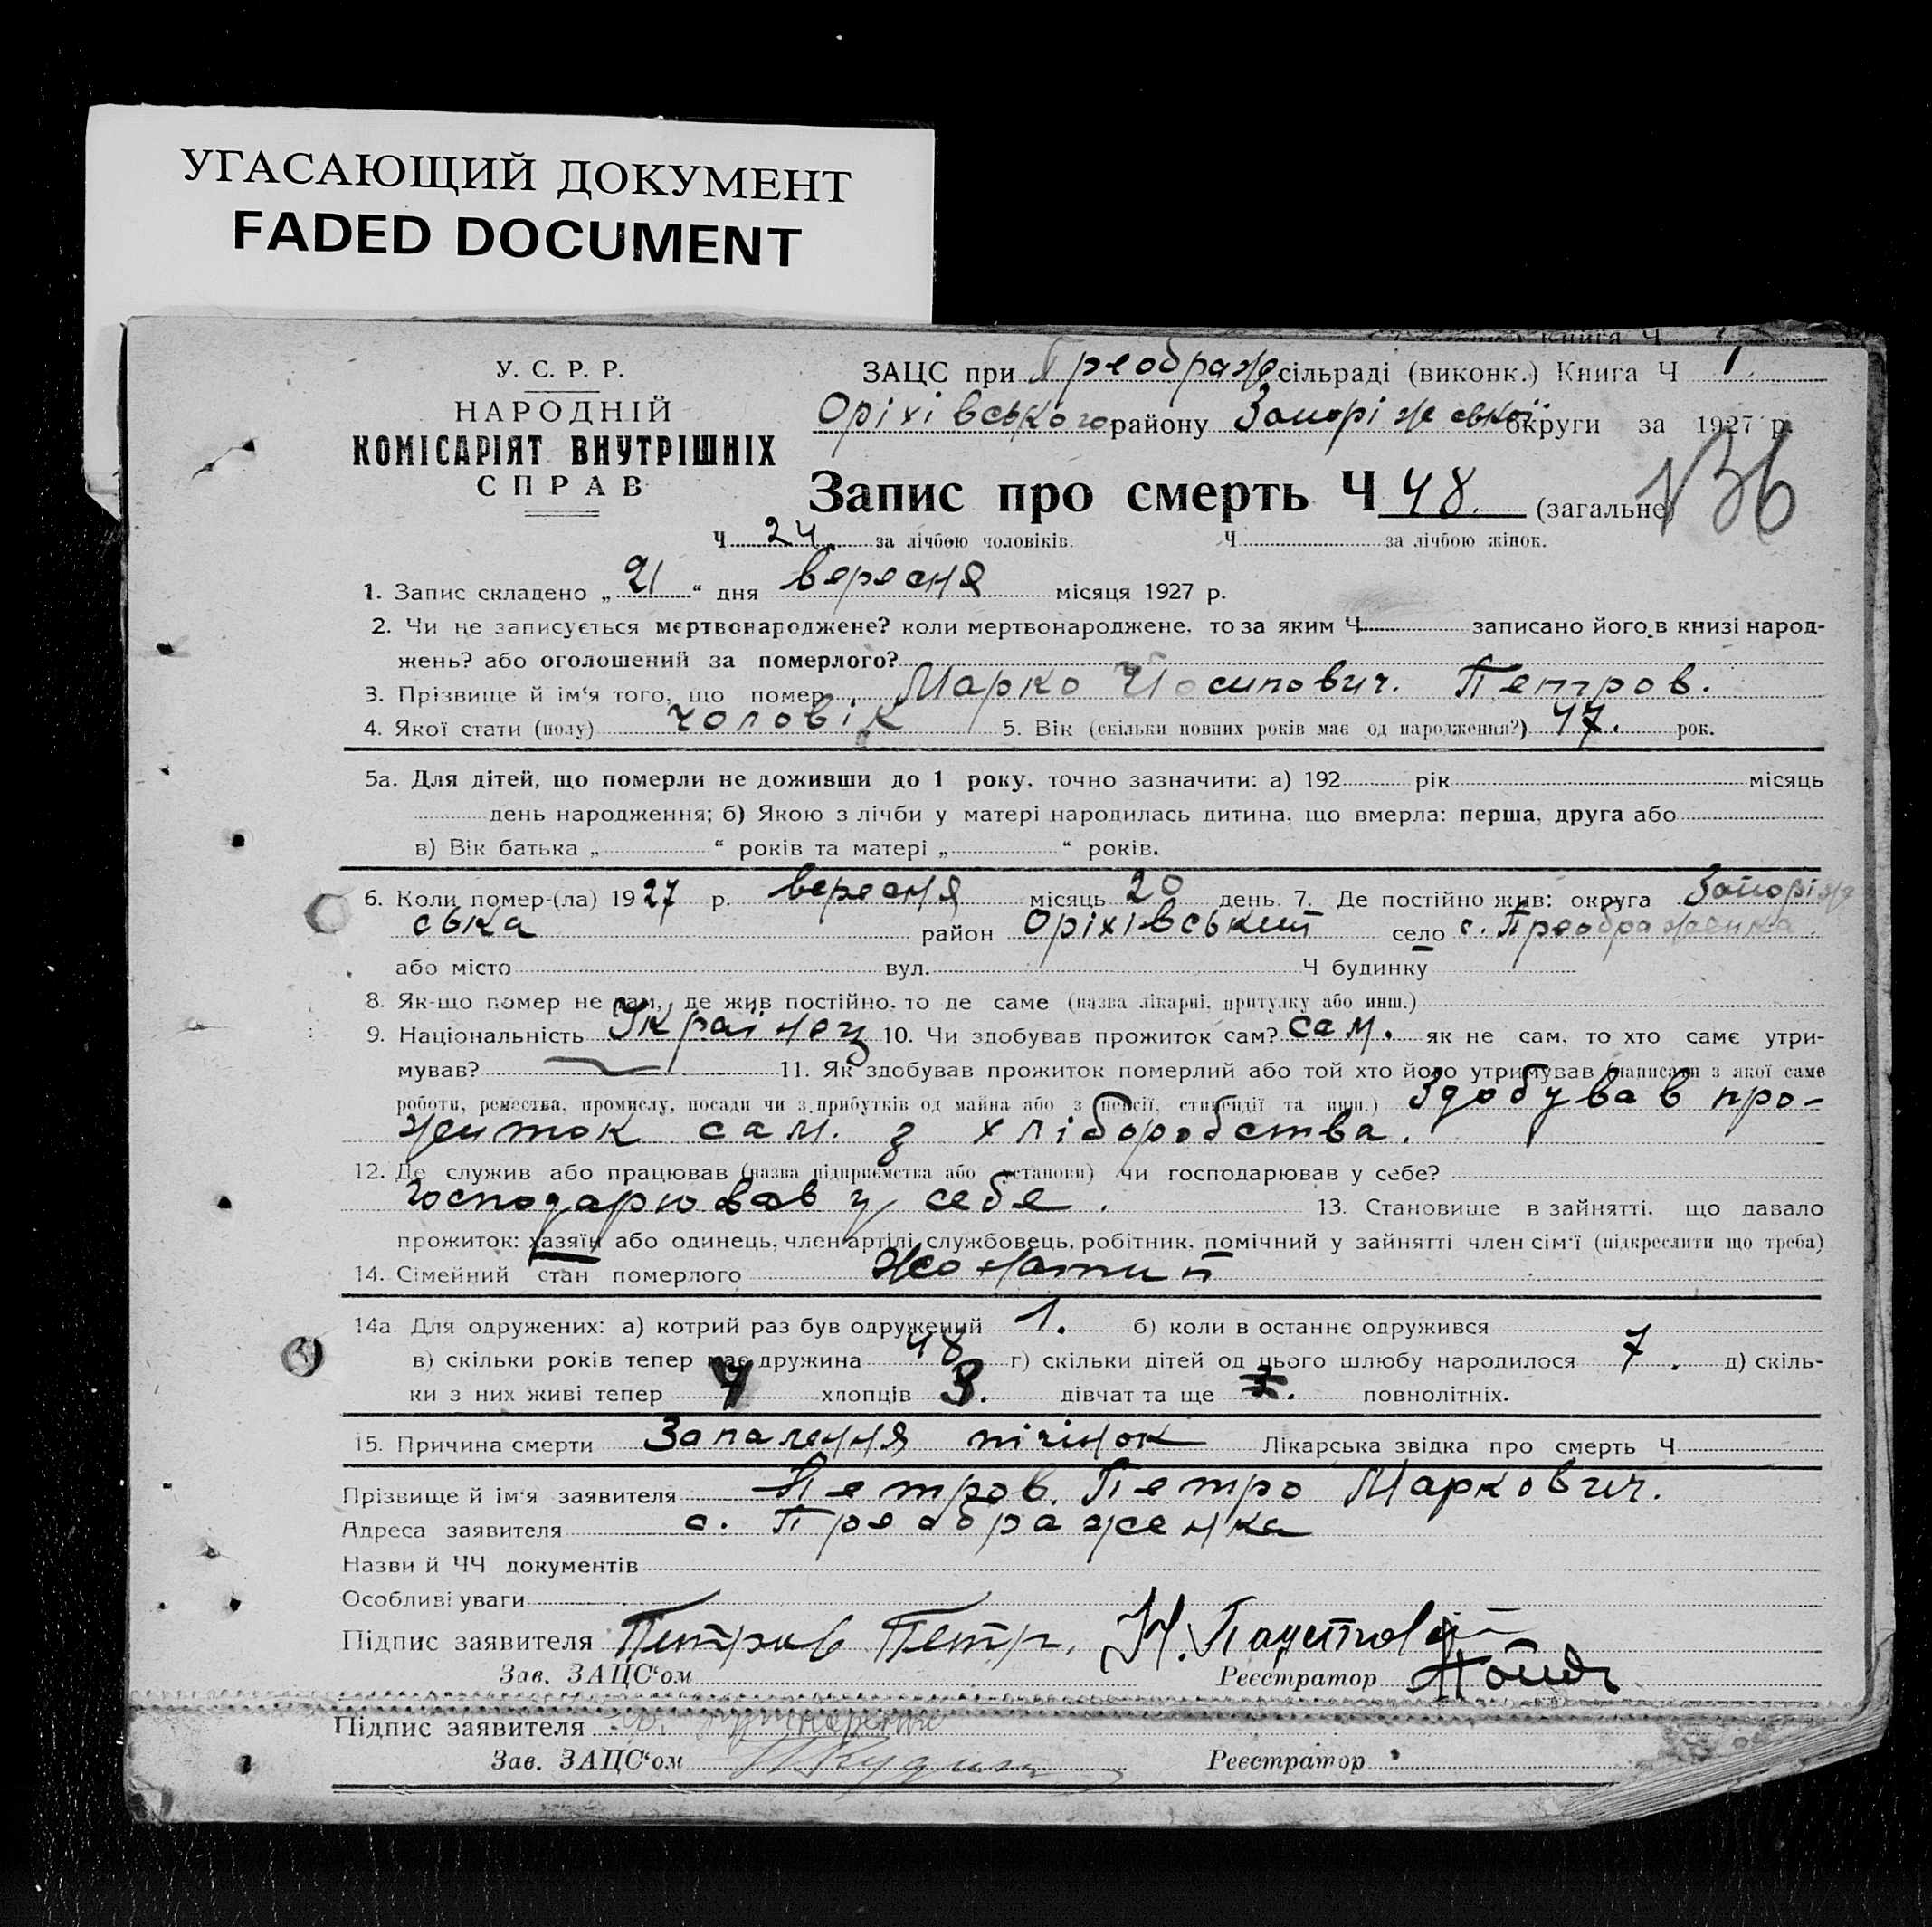 УГАСАЮЩИЙ ДОКУМЕНТ
FADED DOCUMENT
книга Ч
У. С. Р. Р.
НАРОДНІЙ
КОМІСАРІЯТ ВНУТРІШНІХ
СПРАВ
ЗАЦС при Преображ сільраді (виконк.) Книга Ч 1.
Оріхівського району Запоріжської округи за 1927 р.
Запис про смерть Ч 48. (загальне)
136
Ч 24 за лічбою чоловіків. Ч за лічбою жінок.
1. Запис складено „ 21 “ дня вересня місяця 1927 р.
2. Чи не записується мертвонароджене? коли мертвонароджене, то за яким Ч записано його в книзі народ-
жень? або оголошений за померлого?
3. Прізвище й ім‘я того, що помер Марко Йосипович. Петров.
4. Якої стати (полу) чоловік 5. Вік (скільки повних років має од народження?) 47. рок.
5а. Для дітей, що померли не доживши до 1 року, точно зазначити: а) 192 рік місяць
день народження; б) Якою з лічби у матері народилась дитина, що вмерла: перша, друга або
в) Вік батька „ “ років та матері „ “ років.
6. Коли помер-(ла) 1927 р. вересня місяць 20 день 7. Де постійно жив: округа Запоріж
ська район Оріхівський село с. Преображенка.
або місто вул. Ч будинку
8. Як-що помер не там, де жив постійно, то де саме (назва лікарні, притулку або инш.)
9. Національність Українец 10. Чи здобував прожиток сам? сам. як не сам, то хто саме утри-
мував? — 11. Як здобував прожиток померлий або той хто його утримував (написати з якої саме
роботи, ремества, промислу, посади чи з прибутків од майна або з пенсії, стипендії та инш.) Здобував про-
житок сам. з хліборобства.
12. Де служив або працював (назва підприємства або установи) чи господарював у себе?
господарював у себе. 13. Становище в зайнятті, що давало
прожиток: хазяїн або одинець, член артілі, службовець, робітник, помічний у зайнятті член сім‘ї (підкреслити що треба)
14. Сімейний стан померлого Жонатий
14а Для одружених: а) котрий раз був одружений 1. б) коли в останнє одружився
в) скільки років тепер має дружина 48 г) скільки дітей од цього шлюбу народилося 7. д) скіль-
ки з них живі тепер 4 хлопців 3. дівчат та ще повнолітніх.
15. Причина смерти Запалення пічінок Лікарська звідка про смерть Ч
Прізвище й ім‘я заявителя Петров. Петро Маркович.
Адреса заявителя с. Преображенка
Назви й ЧЧ документів
Особливі уваги
Підпис заявителя Петров Петр.
Зав. ЗАЦС‘ом Реєстратор
Підпис заявителя
Зав. ЗАЦС‘ом Реєстратор